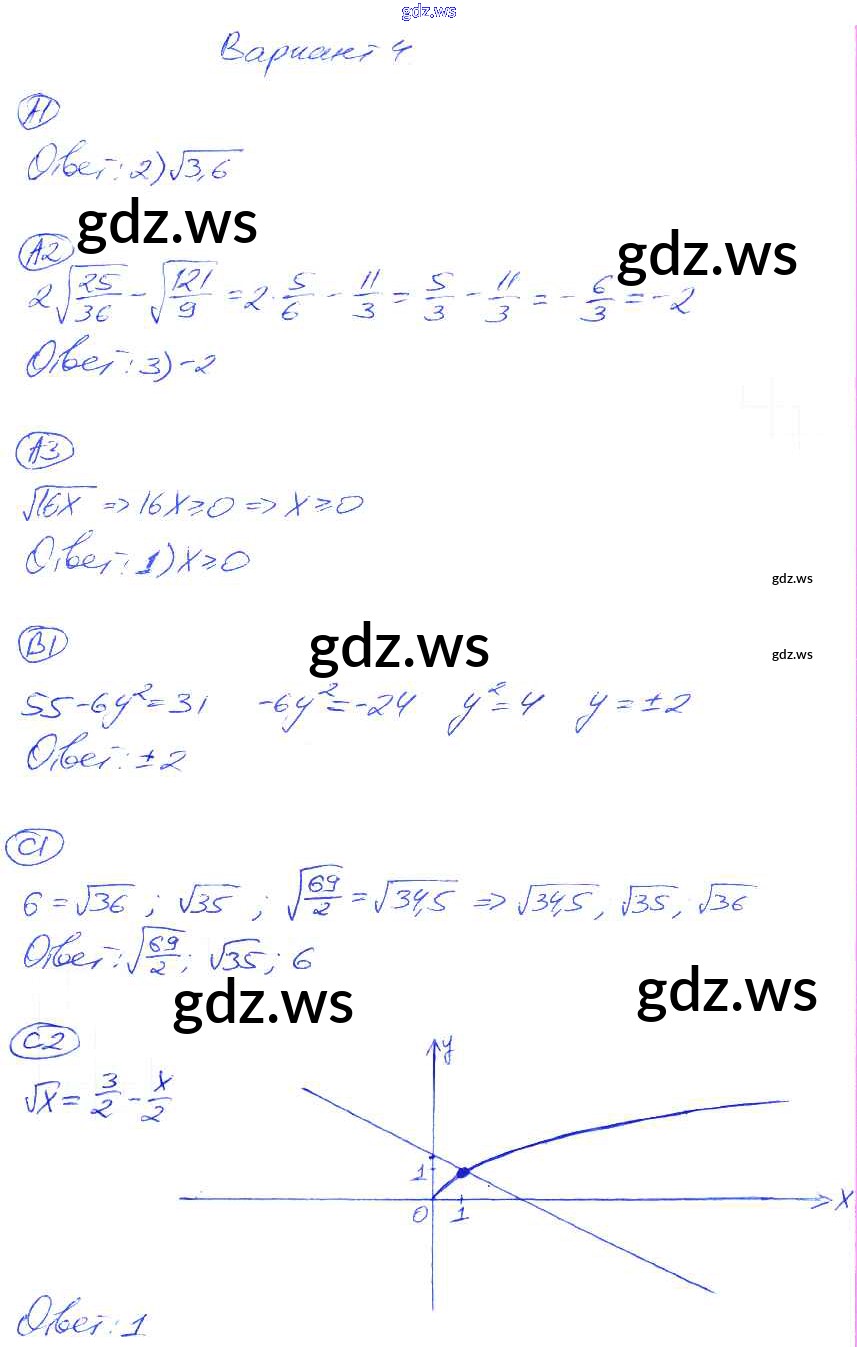 gdz.ws
Вариант 4
A1
Ответ: 2) √3,6
gdz.ws
A2
gdz.ws
2√(25/36) - √(121/9) = 2 · 5/6 - 11/3 = 5/3 - 11/3 = - 6/3 = -2
Ответ: 3) -2
A3
√16x => 16x ≥ 0 => x ≥ 0
Ответ: 1) x ≥ 0
gdz.ws
B1
gdz.ws
gdz.ws
55 - 6y² = 31 -6y² = -24 y² = 4 y = ±2
Ответ: ±2
C1
6 = √36 ; √35 ; √(69/2) = √34,5 => √34,5, √35, √36
Ответ: √(69/2); √35; 6
gdz.ws
gdz.ws
C2
y
√x = 3/2 - x/2
1
x
0 1
Ответ: 1